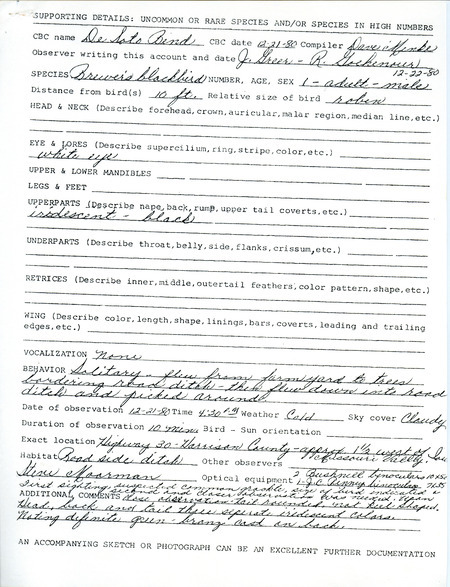 SUPPORTING DETAILS: UNCOMMON OR RARE SPECIES AND/OR SPECIES IN HIGH NUMBERS
CBC name De Soto Bend CBC date 12-21-80 Compiler Dave Menke
Observer writing this account and date J. Greer - R. Stockenour
12-22-80
SPECIES Brewer's blackbird NUMBER, AGE, SEX 1 - adult - male
Distance from bird(s) 10 ft. Relative size of bird robin
HEAD & NECK (Describe forehead, crown, auricular, malar region, median line, etc.)
EYE & LORES (Describe supercilium, ring, stripe, color, etc.)
white eye
UPPER & LOWER MANDIBLES
LEGS & FEET
UPPERPARTS (Describe nape, back, rump, upper tail coverts, etc.)
iridescent - black
UNDERPARTS (Describe throat, belly, side, flanks, crissum, etc.)
RETRICES (Describe inner, middle, outertail feathers, color pattern, shape, etc.)
WING (Describe color, length, shape, linings, bars, coverts, leading and trailing
edges, etc.)
VOCALIZATION None
BEHAVIOR Solitary - flew from farm yard to trees
bordering road ditch - then flew down into road
ditch and picked around.
Date of observation 12-21-80 Time 4:30 PM Weather Cold Sky cover Cloudy
Duration of observation 10 min Bird - Sun orientation
Exact location Highway 30 - Harrison County - approx 1 1/2 west of
Missouri Valley.
Habitat Road side ditch Other observers
Moorman Optical equipment 2 Bushnell binoculars 10x50
1-J.C. Penney binoculars 7x35
First sighting suggested common grackle. Size of bird indicated a
second and closer observation was needed. Upon
ADDITIONAL COMMENTS close observation tail rounded, not keel shaped.
Head, back and tail three separate iridescent colors.
Noting definite green-bronze cast on back.
AN ACCOMPANYING SKETCH OR PHOTOGRAPH CAN BE AN EXCELLENT FURTHER DOCUMENTATION